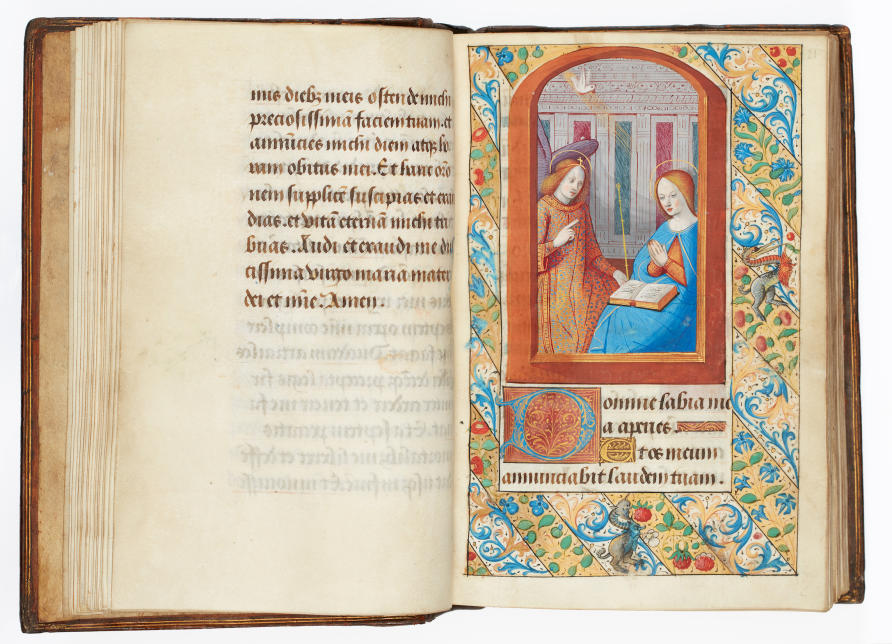 mis dieb; meis ostende michi
preciosissimā faciem tuam. et
annūcies michi diem atq; ho
ram obitus mei. Et hanc oro
nem supplicē suscipias et exau
dias. et vitā eternā michi tri
buas. Audi et exaudi me dul
cissima virgo maria mater
dei et mīe. Amen.
Domine labia me
a aperies.
Et os meum
annunciabit laudem tuam.